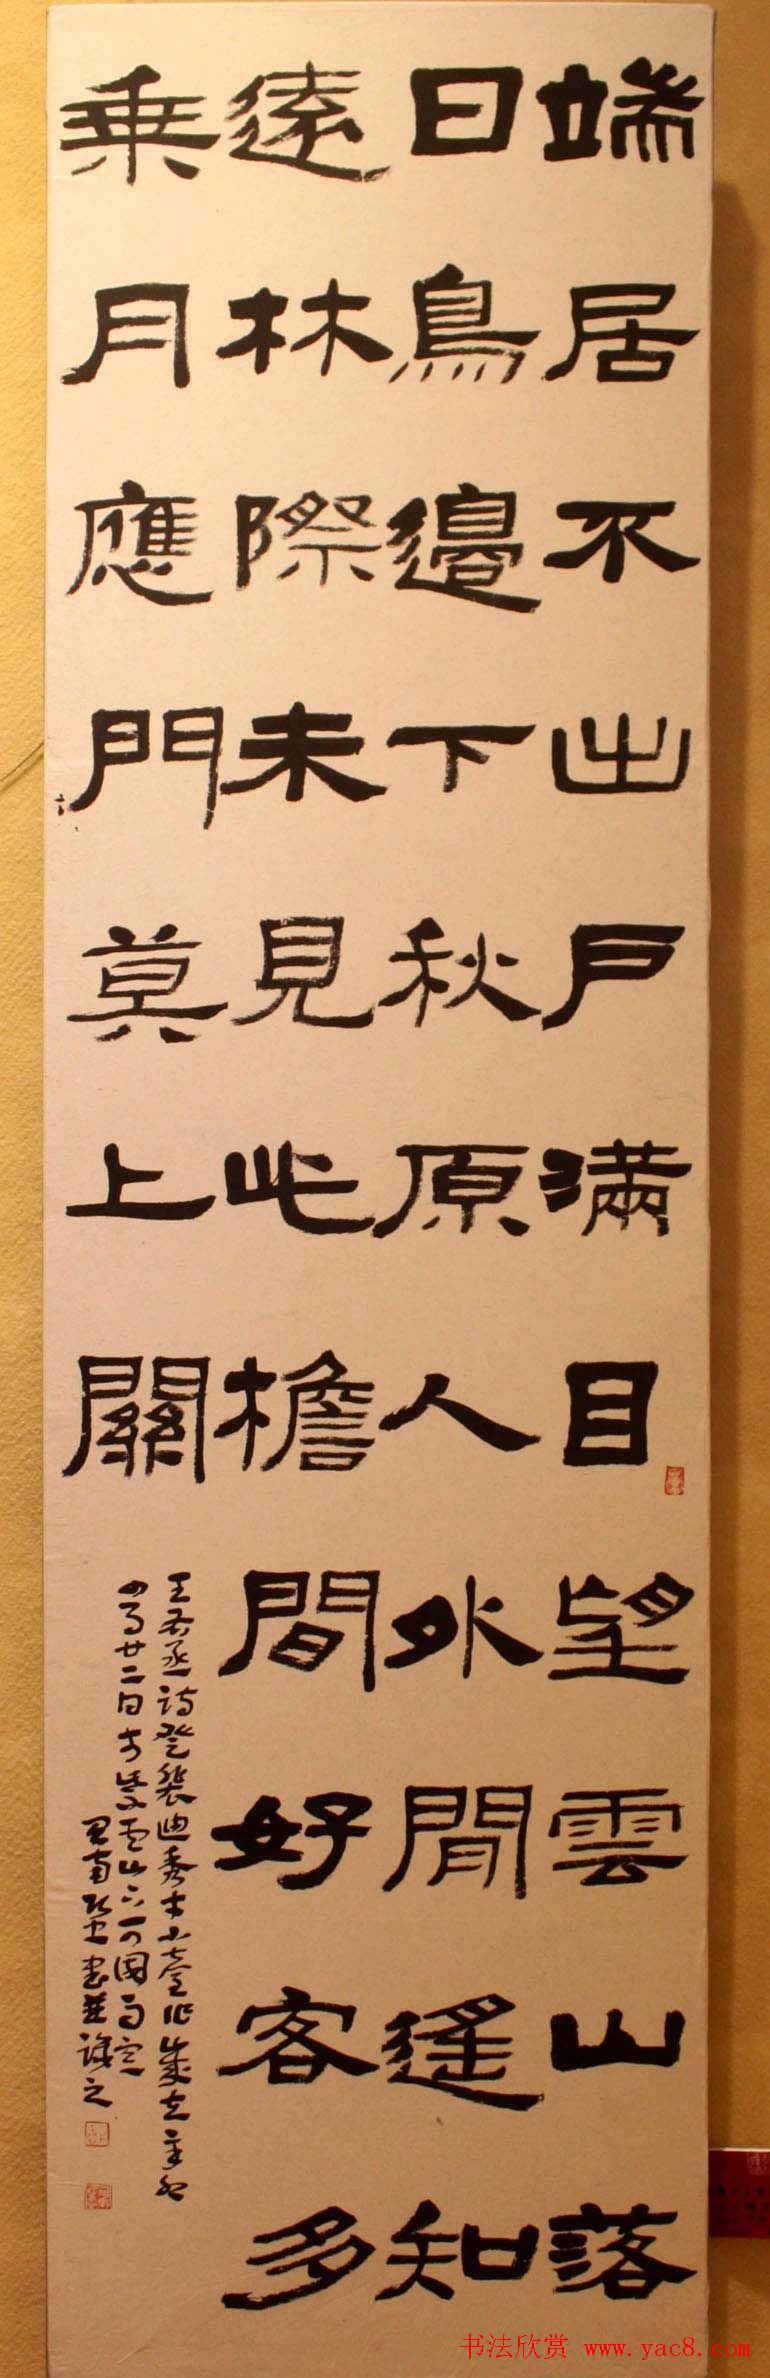 端居不出戶滿目望雲山落
日鳥邊下秋原人外閒遙知
遠林際未見此檐間好客多
乘月應門莫上關
王右丞詩登裴迪秀才小臺作歲在辛卯
四月廿二日
書並識之
书法欣赏 www.yac8.com